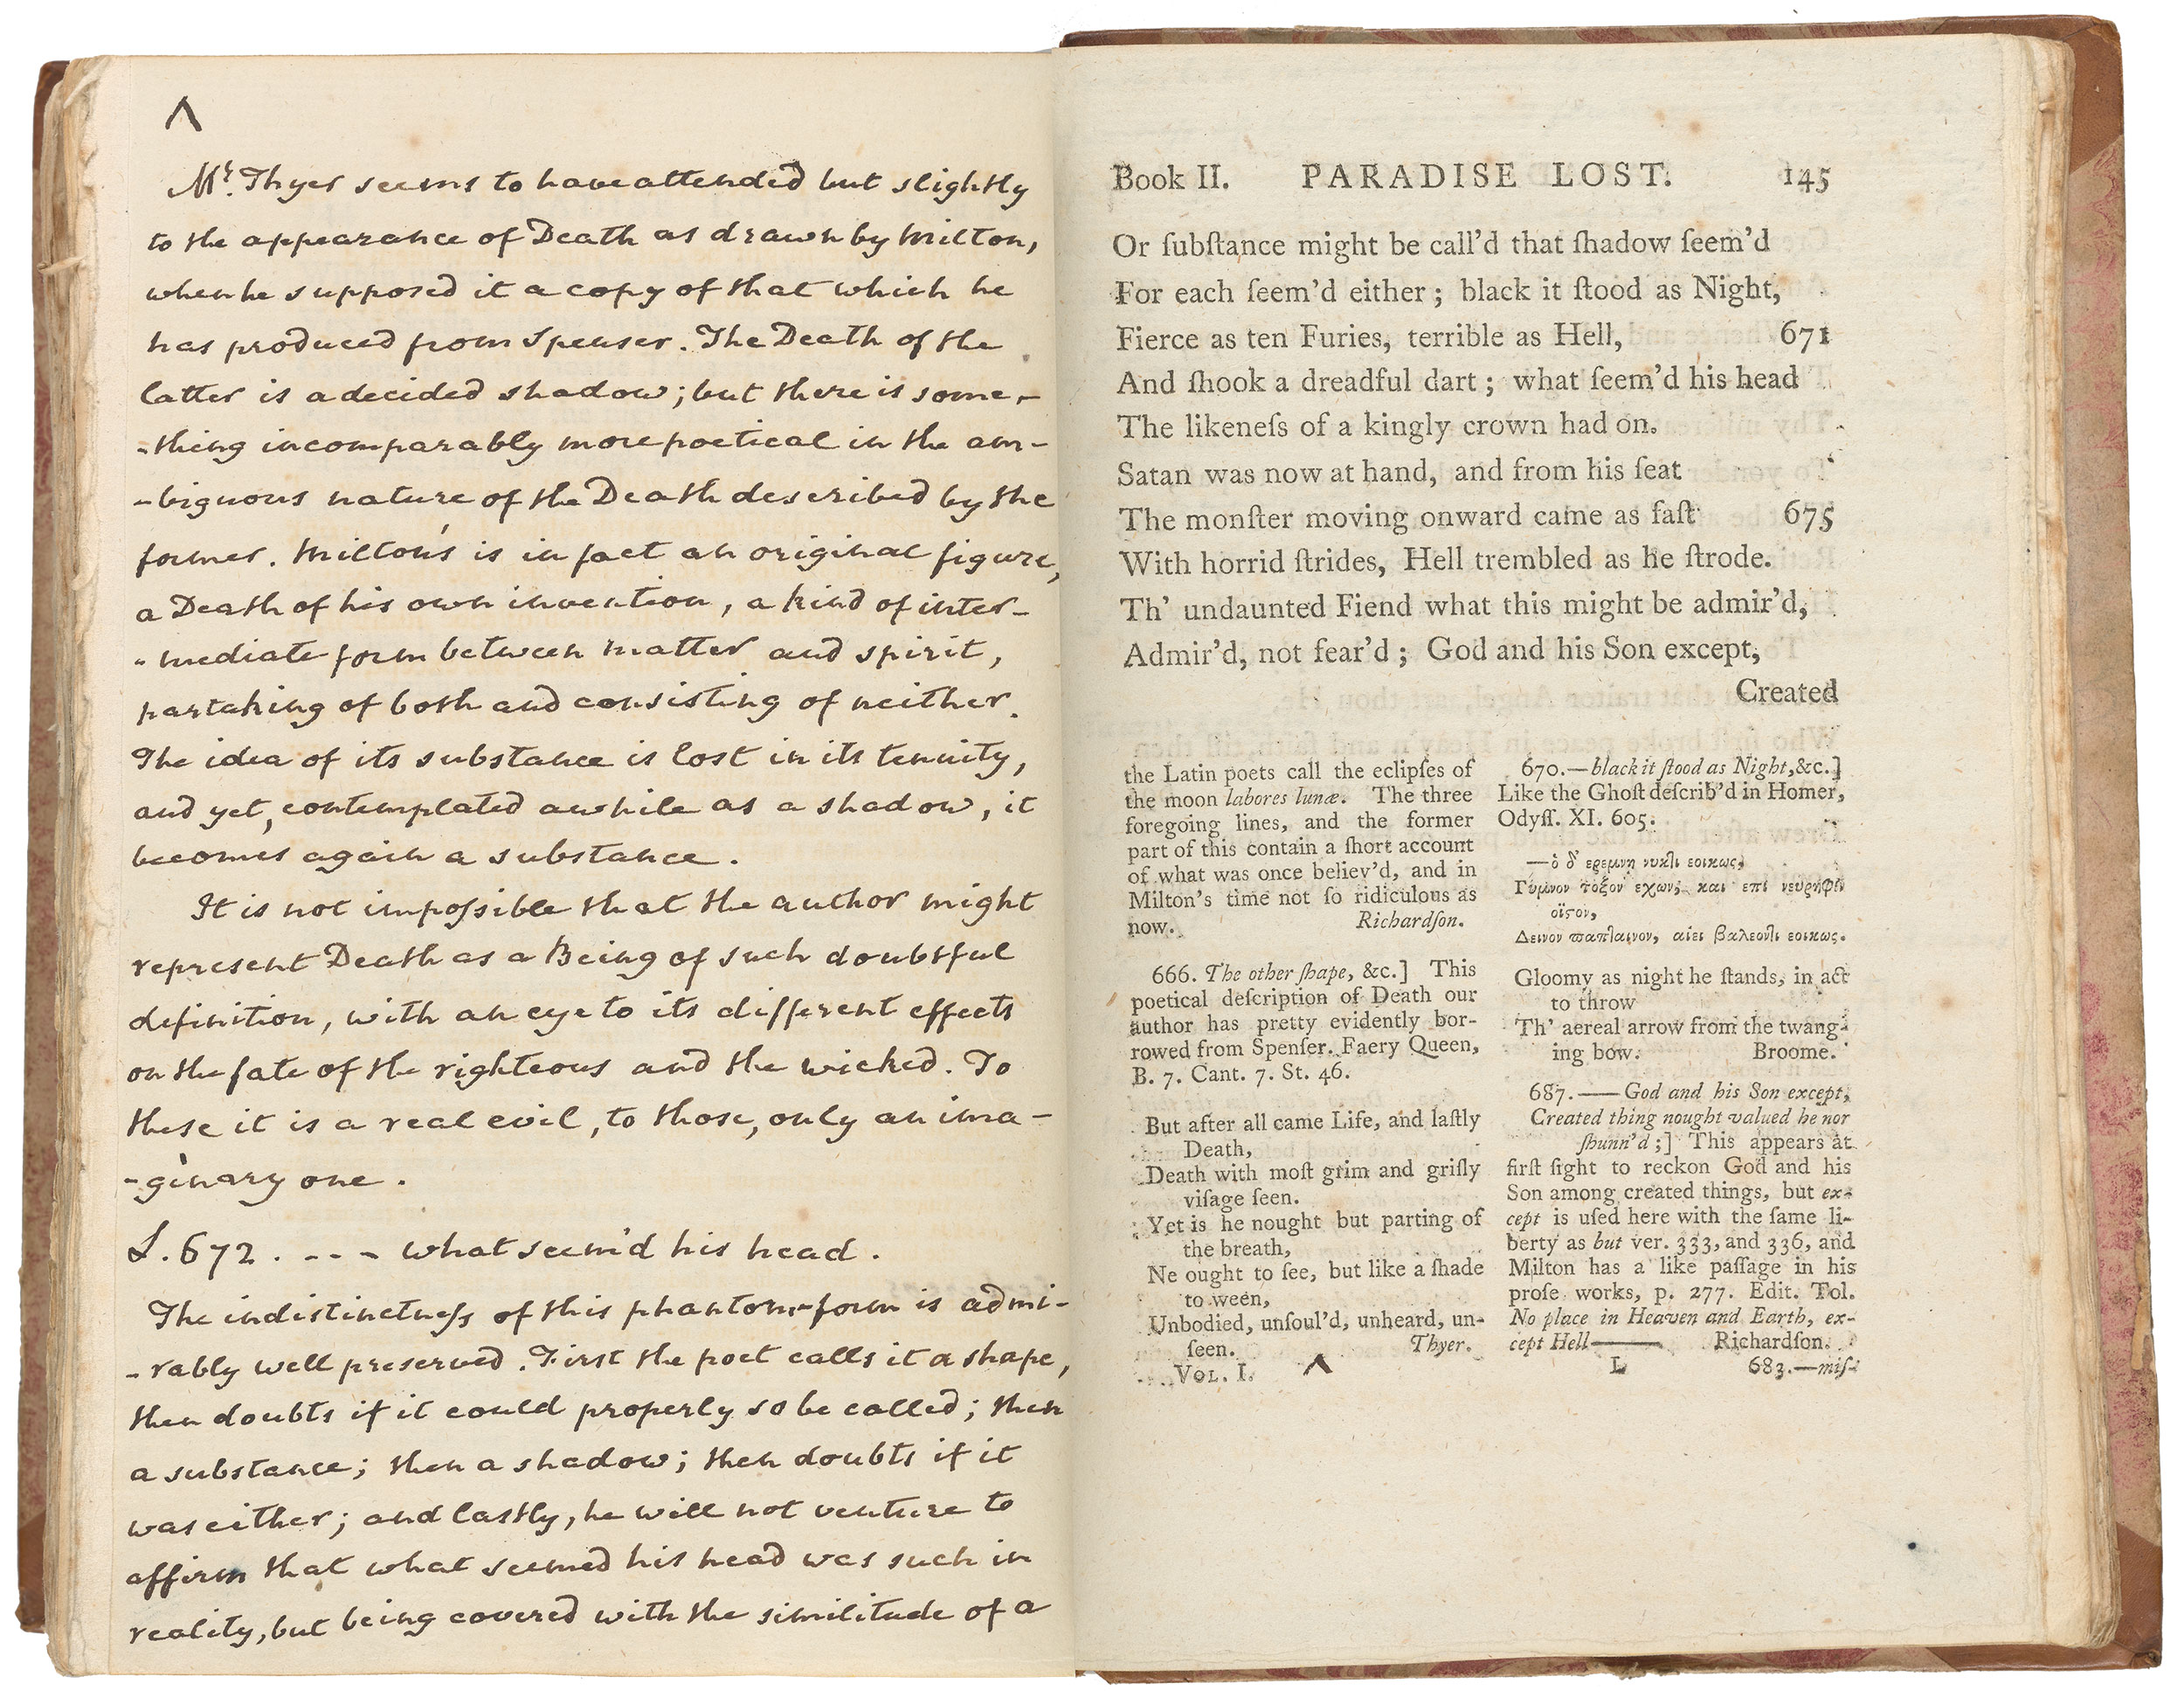 ^
Mr. Thyer seems to have attended but slightly
to the appearance of Death as drawn by Milton,
when he supposed it a copy of that which he
has produced from Spenser. The Death of the
latter is a decided shadow; but there is some-
-thing incomparably more poetical in the am-
-biguous nature of the Death described by the
former. Milton's is in fact an original figure,
a Death of his own invention, a kind of inter-
-mediate form between matter and spirit,
partaking of both and consisting of neither.
The idea of its substance is lost in its tenuity,
and yet, contemplated awhile as a shadow, it
becomes again a substance.
It is not impoſsible that the author might
represent Death as a Being of such doubtful
definition, with an eye to its different effects
on the fate of the righteous and the wicked. To
these it is a real evil, to those, only an ima-
-ginary one.
L. 672. - - - what seem'd his head.
The indistinctneſs of this phantom-form is admi-
-rably well preserved. First the poet calls it a shape,
then doubts if it could properly so be called; then
a substance; then a shadow; then doubts if it
was either; and lastly, he will not venture to
affirm that what seemed his head was such in
reality, but being covered with the similitude of a
Book II. PARADISE LOST. 145
Or ſubſtance might be call'd that ſhadow ſeem'd
For each ſeem'd either; black it ſtood as Night,
Fierce as ten Furies, terrible as Hell, 671
And ſhook a dreadful dart; what ſeem'd his head
The likeneſs of a kingly crown had on.
Satan was now at hand, and from his ſeat
The monſter moving onward came as faſt 675
With horrid ſtrides, Hell trembled as he ſtrode.
Th' undaunted Fiend what this might be admir'd,
Admir'd, not fear'd; God and his Son except,
Created
the Latin poets call the eclipſes of
the moon labores lunæ. The three
foregoing lines, and the former
part of this contain a ſhort account
of what was once believ'd, and in
Milton's time not ſo ridiculous as
now. Richardſon.
666. The other ſhape, &c.] This
poetical deſcription of Death our
author has pretty evidently bor-
rowed from Spenſer. Faery Queen,
B. 7. Cant. 7. St. 46.
But after all came Life, and laſtly
Death,
Death with moſt grim and griſly
viſage ſeen.
Yet is he nought but parting of
the breath,
Ne ought to ſee, but like a ſhade
to ween,
Unbodied, unſoul'd, unheard, un-
ſeen. Thyer.
VOL. I. ^
670.—black it ſtood as Night, &c.]
Like the Ghoſt deſcrib'd in Homer,
Odyſſ. XI. 605.
—ὁ δ' ερεμνῃ νυκτι εοικως,
Γυμνον τοξον εχων, και επι νευρηφιν
οϊϛον,
Δεινον παπταινον, αιει βαλεοντι εοικως.
Gloomy as night he ſtands, in act
to throw
Th' aereal arrow from the twang-
ing bow. Broome.
687.—God and his Son except,
Created thing nought valued he nor
ſhunn'd;] This appears at
firſt ſight to reckon God and his
Son among created things, but ex-
cept is uſed here with the ſame li-
berty as but ver. 333, and 336, and
Milton has a like paſſage in his
proſe works, p. 277. Edit. Tol.
No place in Heaven and Earth, ex-
cept Hell— Richardſon.
L 683.—miſ-